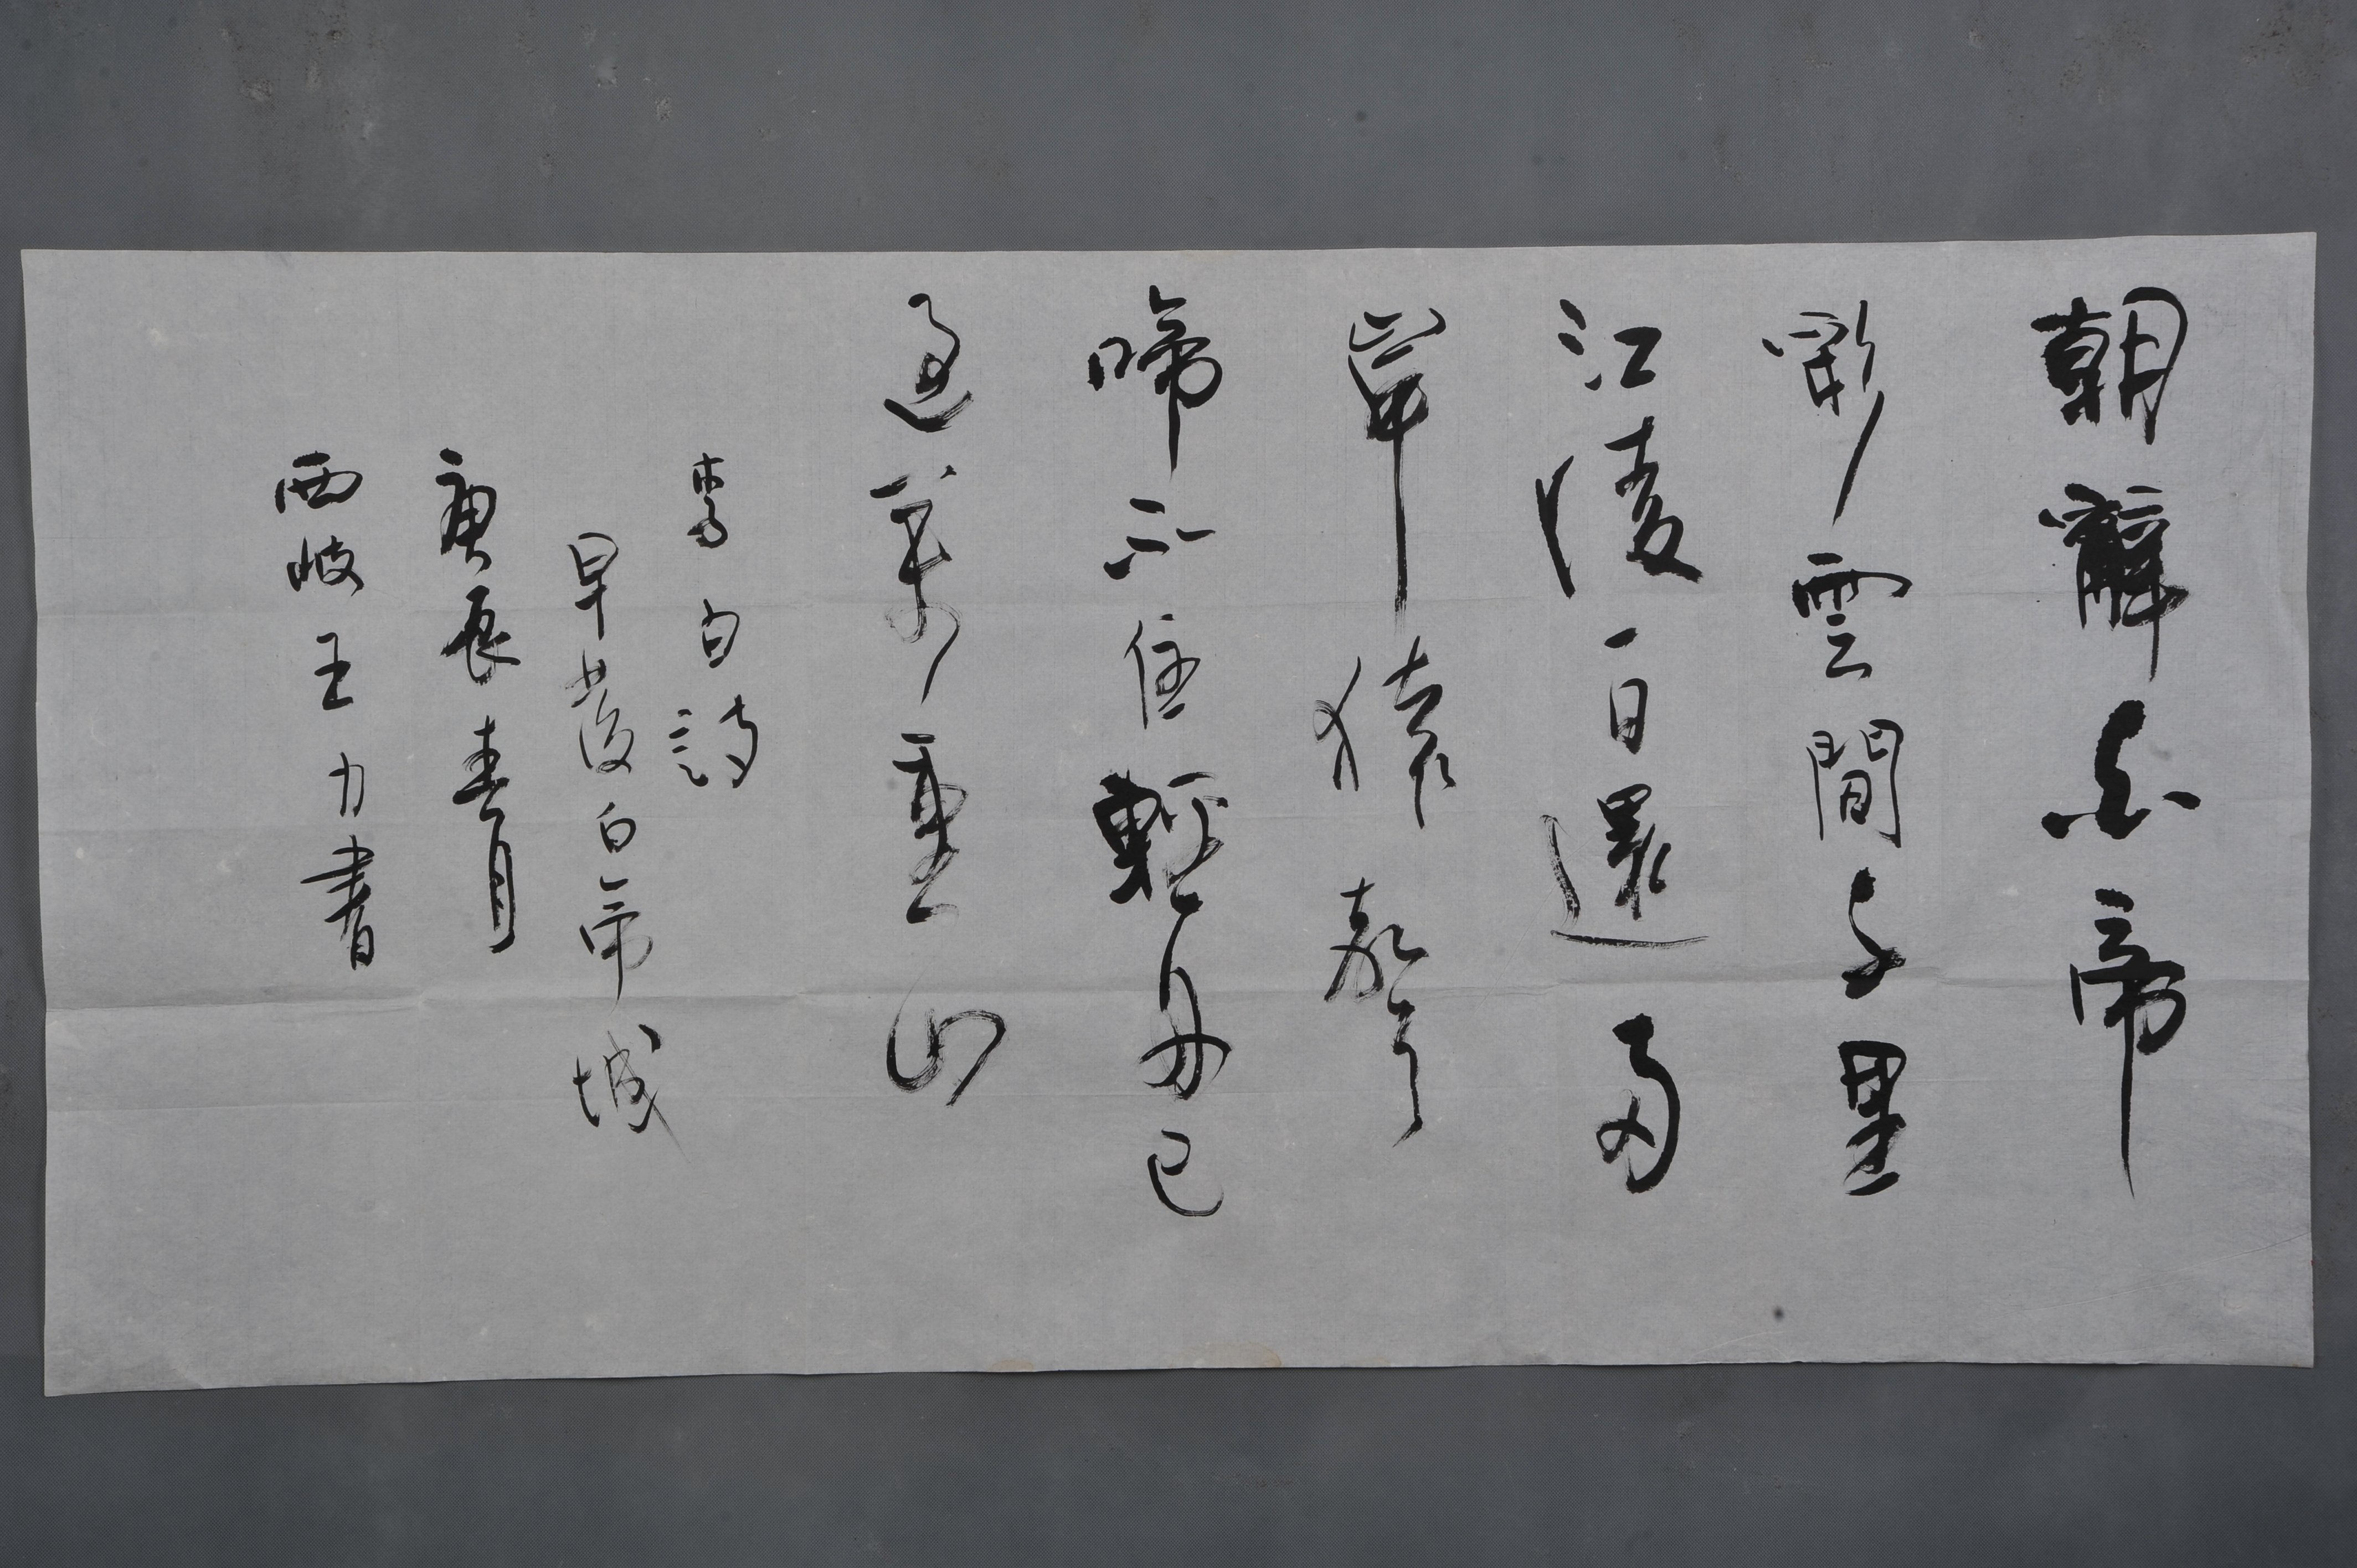 朝辭白帝
彩雲間千里
江陵一日還兩
岸猿聲
啼不住輕舟已
過萬重山
李白詩
早發白帝城
庚辰春月
西岐王力書